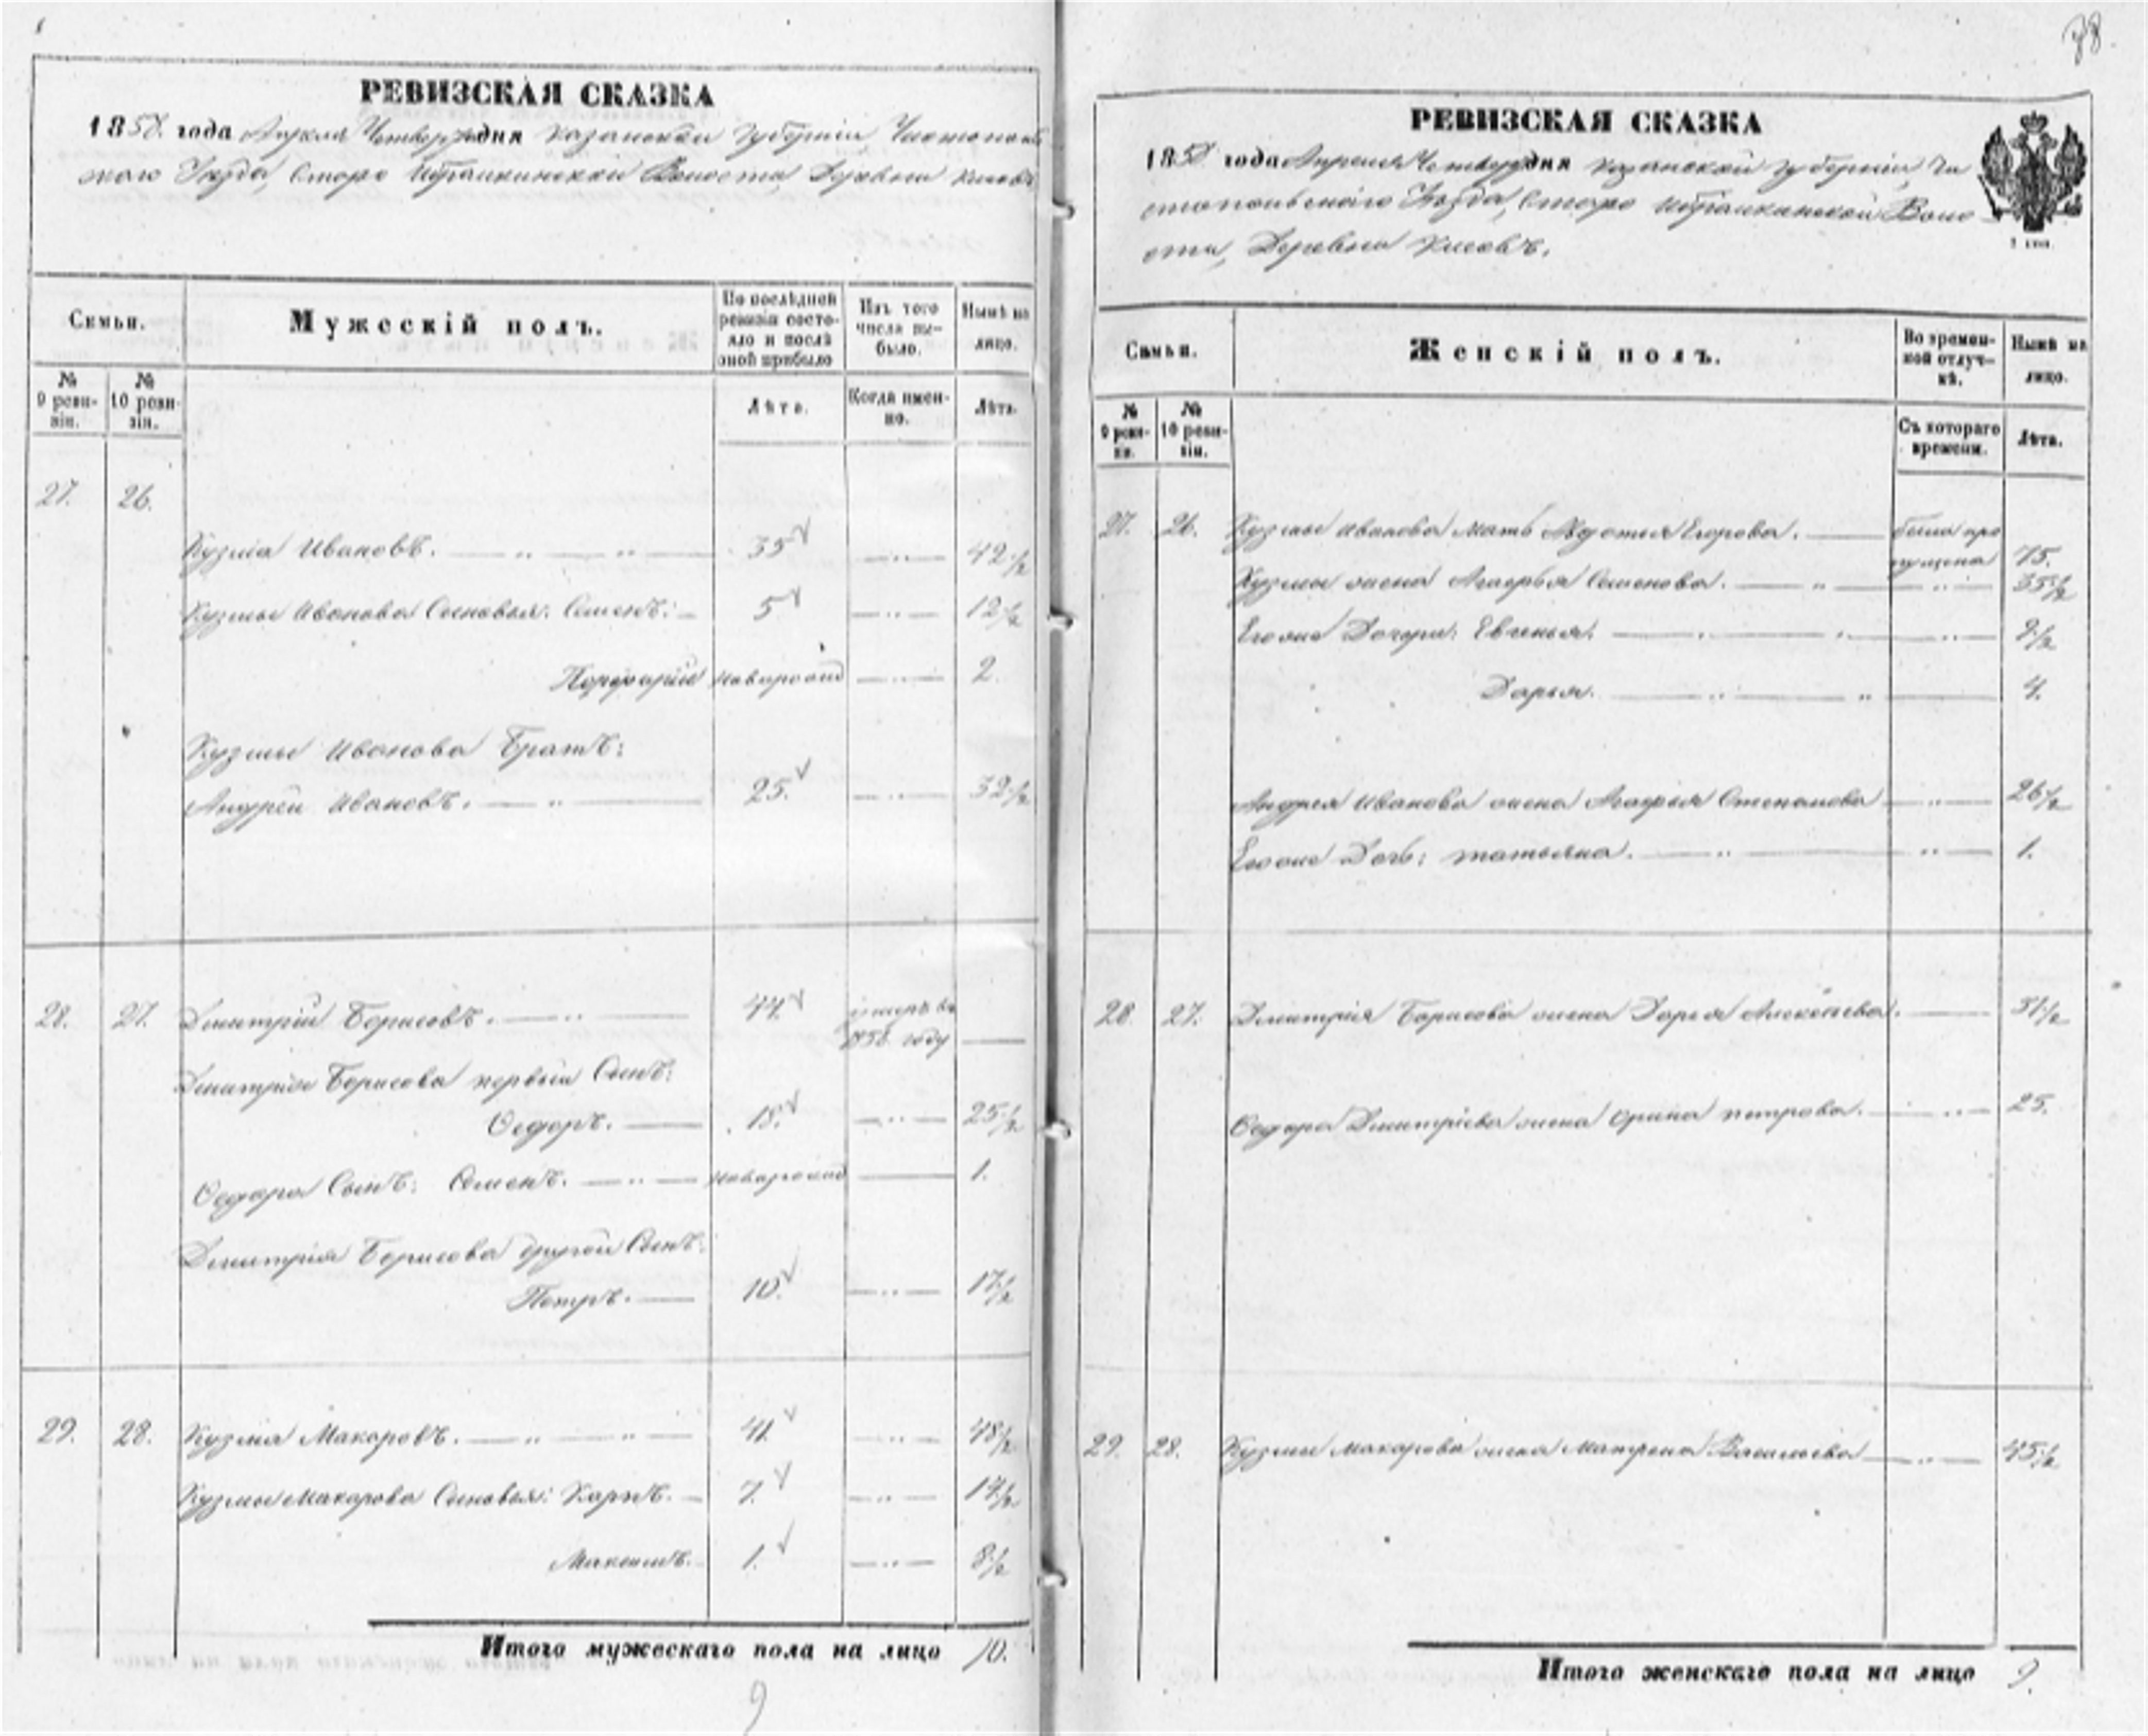 РЕВИЗСКАЯ СКАЗКА
1858. года Апреля Четвертаго дня Казанской Губернiи, Чистополь
скаго Уѣзда, Старо Ибрайкинской Волости, Деревни Кисовъ
Семьи.
Мужескiй полъ.
По послѣдней ревизiи состояло и послѣ оной прибыло
Изъ того числа выбыло.
Нынѣ на лицо.
№ 9 ревизiи.
№ 10 ревизiи.
Лѣта.
Когда именно.
Лѣта.
27. 26.
Кузма Ивановъ. 35 42 1/2
Кузмы Иванова Сыновья: Семенъ: 5 12 1/2
Порфирiй новарожд 2.
Кузмы Иванова Братъ:
Андрей Ивановъ. 25. 32 1/2
28. 27. Дмитрiй Борисовъ. 44. умеръ въ
185 году
Дмитрiя Борисова первый Сынъ:
Ѳедоръ. 18. 25 1/2
Ѳедора Сынъ: Семенъ. новарожд 1.
Дмитрiя Борисова другой Сынъ:
Петръ. 10. 17 1/2
29. 28. Кузма Макаровъ. 41 48 1/2
Кузмы Макарова Сыновья: Карпъ. 7. 14 1/2
Максимъ. 1. 8 1/2
Итого мужескаго пола на лицо 10.
9
38.
РЕВИЗСКАЯ СКАЗКА
1858 года Апреля Четвертаго дня Казанской Губернiи, Чи
стопольскаго Уѣзда, Старо Ибрайкинской Воло
сти, Деревни Кисовъ.
Семьи.
Женскiй полъ.
Во временной отлучкѣ.
Нынѣ на лицо.
№ 9 ревизiи.
№ 10 ревизiи.
Съ котораго времени.
Лѣта.
27. 26. Кузмы Иванова Мать Авдотья Егорова. была про
пущена 75.
Кузмы жена Агафья Семенова. 35 1/2
Его же Дочери: Евгенья. 9 1/2
Дарья. 4.
Андрея Иванова жена Агафья Степанова 26 1/2
Его же Дочь: татьяна. 1.
28 27. Дмитрiя Борисова жена Дарья Алексѣева. 51 1/2
Ѳедора Дмитрiева жена Орина петрова. 25.
29. 28. Кузмы Макарова жена Матрена Васильева 45 1/2
Итого женскаго пола на лицо 9.